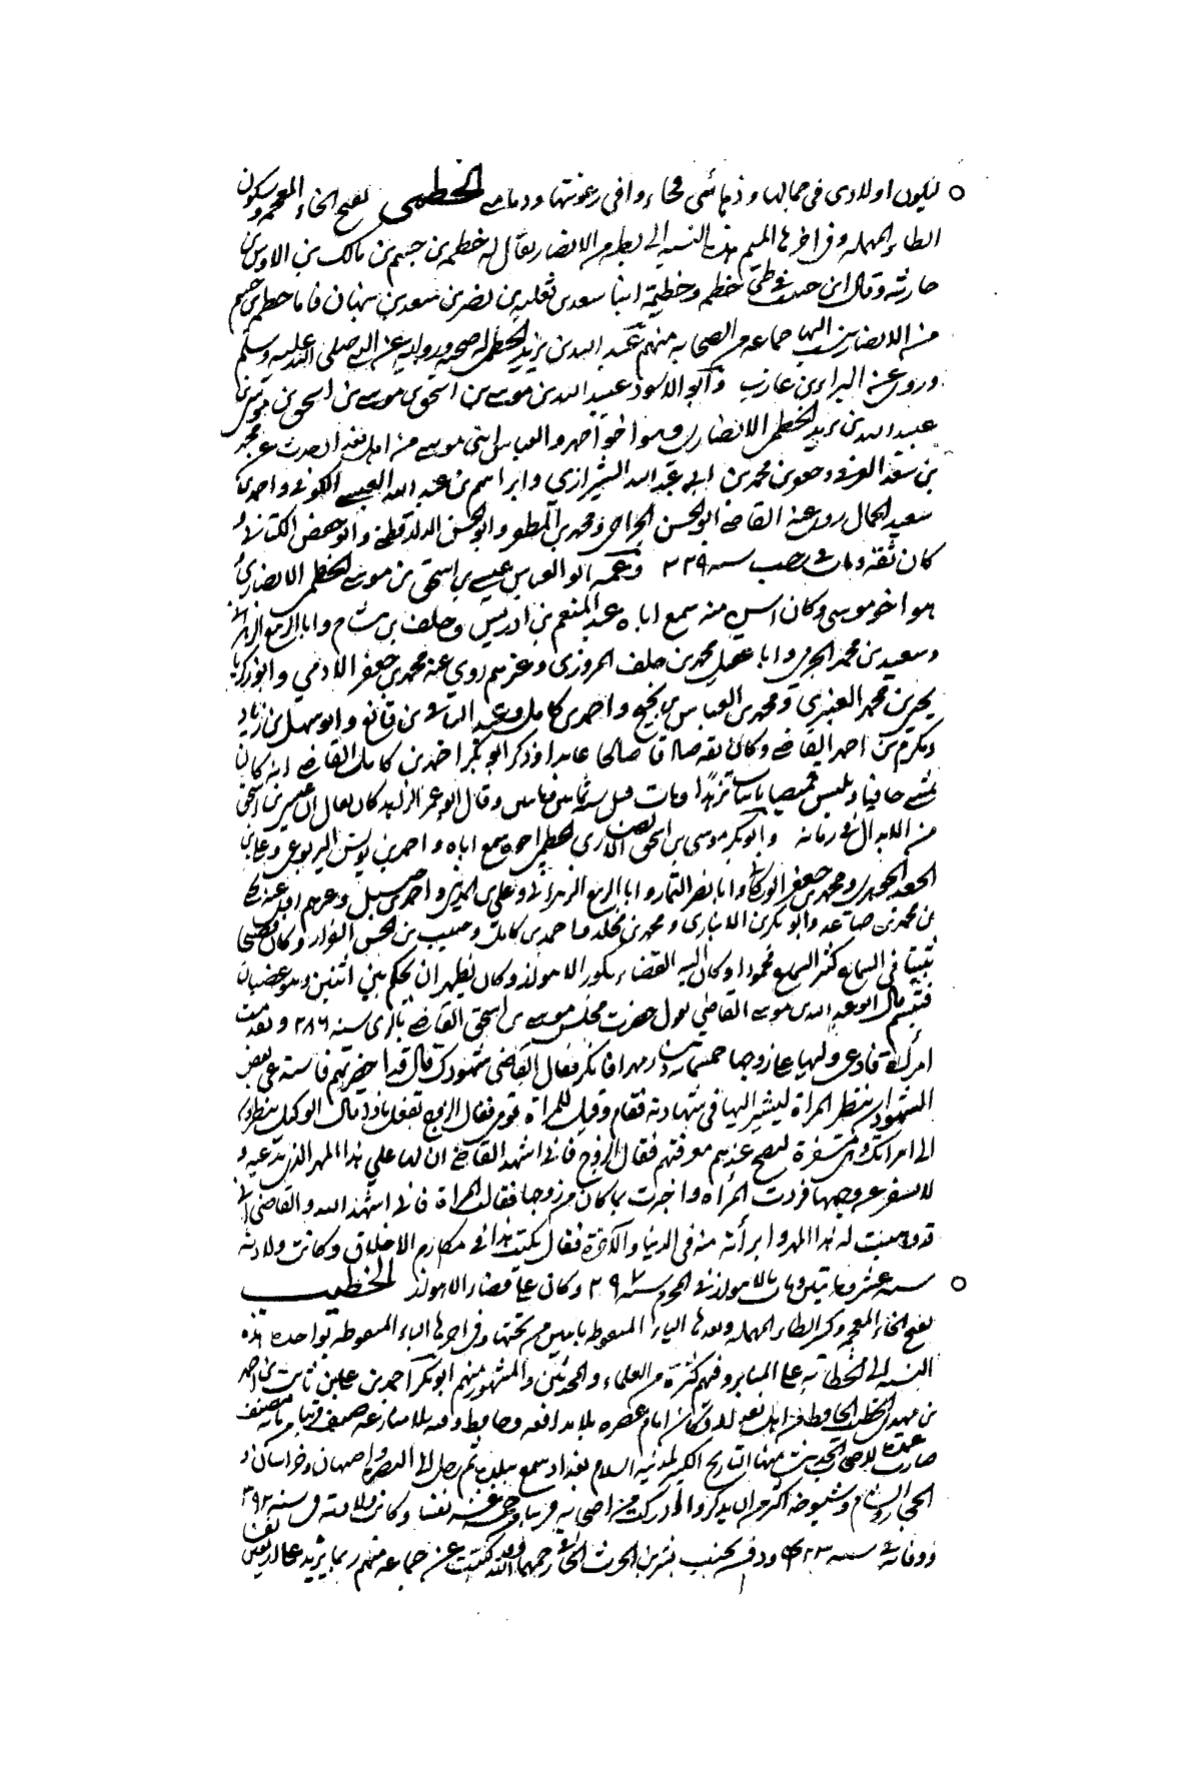 لیکون اولادی فی جمالها وذکائی فجاءوا فی رعونتها ودمامتی الخطمی بفتح الخاء المعجمة وسکون
الطاء المهملة وفی اخرها المیم هذه النسبة الی بطن من الانصار یقال له خطمة بن جشم بن مالک بن الاوس بن
حارثة وقال ابن حبیب فی طی خطمة وخطیمة ابنا سعد بن ثعلبة بن نصر بن سعد بن نبهان فاما خطمة بن جشم
من الانصار ینسب الیها جماعة من الصحابة منهم عبد الله بن یزید الخطمی له صحبة وروایة عن النبی صلی الله علیه وسلم
وروی عنه البراء بن عازب وابو الاسود عبید الله بن موسی بن اسحق بن موسی بن اسحق بن موسی بن
عبد الله بن یزید الخطمی الانصاری وهو اخو احمد والعباس ابنی موسی من اهل بغداد حدث عن محمد
بن سعد العوفی وجعفر بن محمد بن ابی عبد الله الشیرازی وابراهیم بن عبد الله العبسی الکوفی واحمد بن
سعید الجمال روی عنه القاضی ابو الحسن الجراحی ومحمد بن المظفر وابو الحسن الدارقطنی وابو حفص الکتانی و
کان ثقة ومات فی رجب سنة ٣٢٩ وعمه ابو العباس عیسی بن اسحق بن موسی الخطمی الانصاری
هو اخو موسی وکان اسن منه سمع اباه وعبد المنعم بن ادریس وخلف بن هشام وابا الربیع الزهرانی
وسعید بن محمد الجرمی وابا محمد بن خلف المروزی وغیرهم روی عنه محمد بن جعفر الادمی وابو زکریا
یحیی بن محمد العنبری ومحمد بن العباس بن نجیح واحمد بن کامل وعبد الباقی بن قانع وابو سهل بن زیاد
ومکرم بن احمد القاضی وکان ثقة صادقا صالحا عابدا وذکر ابو بکر احمد بن کامل القاضی انه کان
یمشی حافیا ویلبس قمیصا تزهدا ومات قبل سنة ثمانین ومائتین وقال ابو عمر الزاهد کان یقال ان عیسی بن اسحق
من الابدال فی زمانه وابو بکر موسی بن اسحق الانصاری الخطمی اخوه سمع اباه واحمد بن یونس الیربوعی وعلی بن
الجعد الجوهری ومحمد بن جعفر الورکانی وابا نصر التمار وابا الربیع الزهرانی وعلی بن المدینی واحمد بن حنبل وغیرهم روی عنه یحیی
بن محمد بن صاعد وابو بکر بن الانباری ومحمد بن مخلد واحمد بن کامل وحبیب بن الحسن القزاز وکان فصیحا
ثبتا فی السماع کثیر السماع محمودا وکان الیه القضاء بکور الاهواز وکان یظهر ان یحکم بین اثنین وهو غضبان
فتبسم قال ابو عبد الله بن موسی القاضی یقول حضرت مجلس موسی بن اسحق القاضی بالری سنة ٢٨٦ وتقدمت
امرأة فادعی ولیها علی زوجها خمسمائة دینار مهرا فانکر فقال القاضی شهودک قال قد احضرتهم فاستدعی بعض
الشهود ان ینظر المرأة لیشیر الیها فی شهادته فقام وقیل للمرأة قومی فقال الزوج تفعل ماذا قال الوکیل ینظرون
الی امرأتک وهی مسفرة لیصح عندهم معرفتهم فقال الزوج فانی اشهد القاضی ان لها علی هذا المهر الذی تدعیه و
لا تسفر عن وجهها فردت المرأة واخبرت بما کان من زوجها فقالت المرأة فانی اشهد الله والقاضی انی
قد وهبت له هذا المهر وابرأته منه فی الدنیا والآخرة فقال یکتب هذا فی مکارم الاخلاق وکانت ولادته
سنة عشر ومائتین ومات بالاهواز فی المحرم سنة ٢٩٧ وکان علی قضاء الاهواز الخطیب
بفتح الخاء المعجمة وکسر الطاء المهملة وبعدها الیاء المنقوطة باثنتین من تحتها وفی اخرها الباء المنقوطة بواحدة هذه
النسبة الی الخطابة علی المنابر وفیهم کثرة من العلماء والمحدثین والمشهور منهم ابو بکر احمد بن علی بن ثابت بن احمد
بن مهدی الخطیب الحافظ من اهل بغداد کان امام عصره بلا مدافعة وحافظ وقته بلا منازعة صنف قریبا من مائة مصنف
صارت عمدة لاصحاب الحدیث منها التاریخ الکبیر لمدینة السلام بغداد سمع ببلده ثم رحل الی البصرة واصبهان وخراسان و
الحجاز والشام وشیوخه اکثر من ان یذکروا الی وکانت ولادته فی سنة ٣٩٢
ووفاته فی سنة ٤٦٣ ودفن بجنب بشر بن الحرث الحافی رحمهما الله کتبت عن جماعة منهم